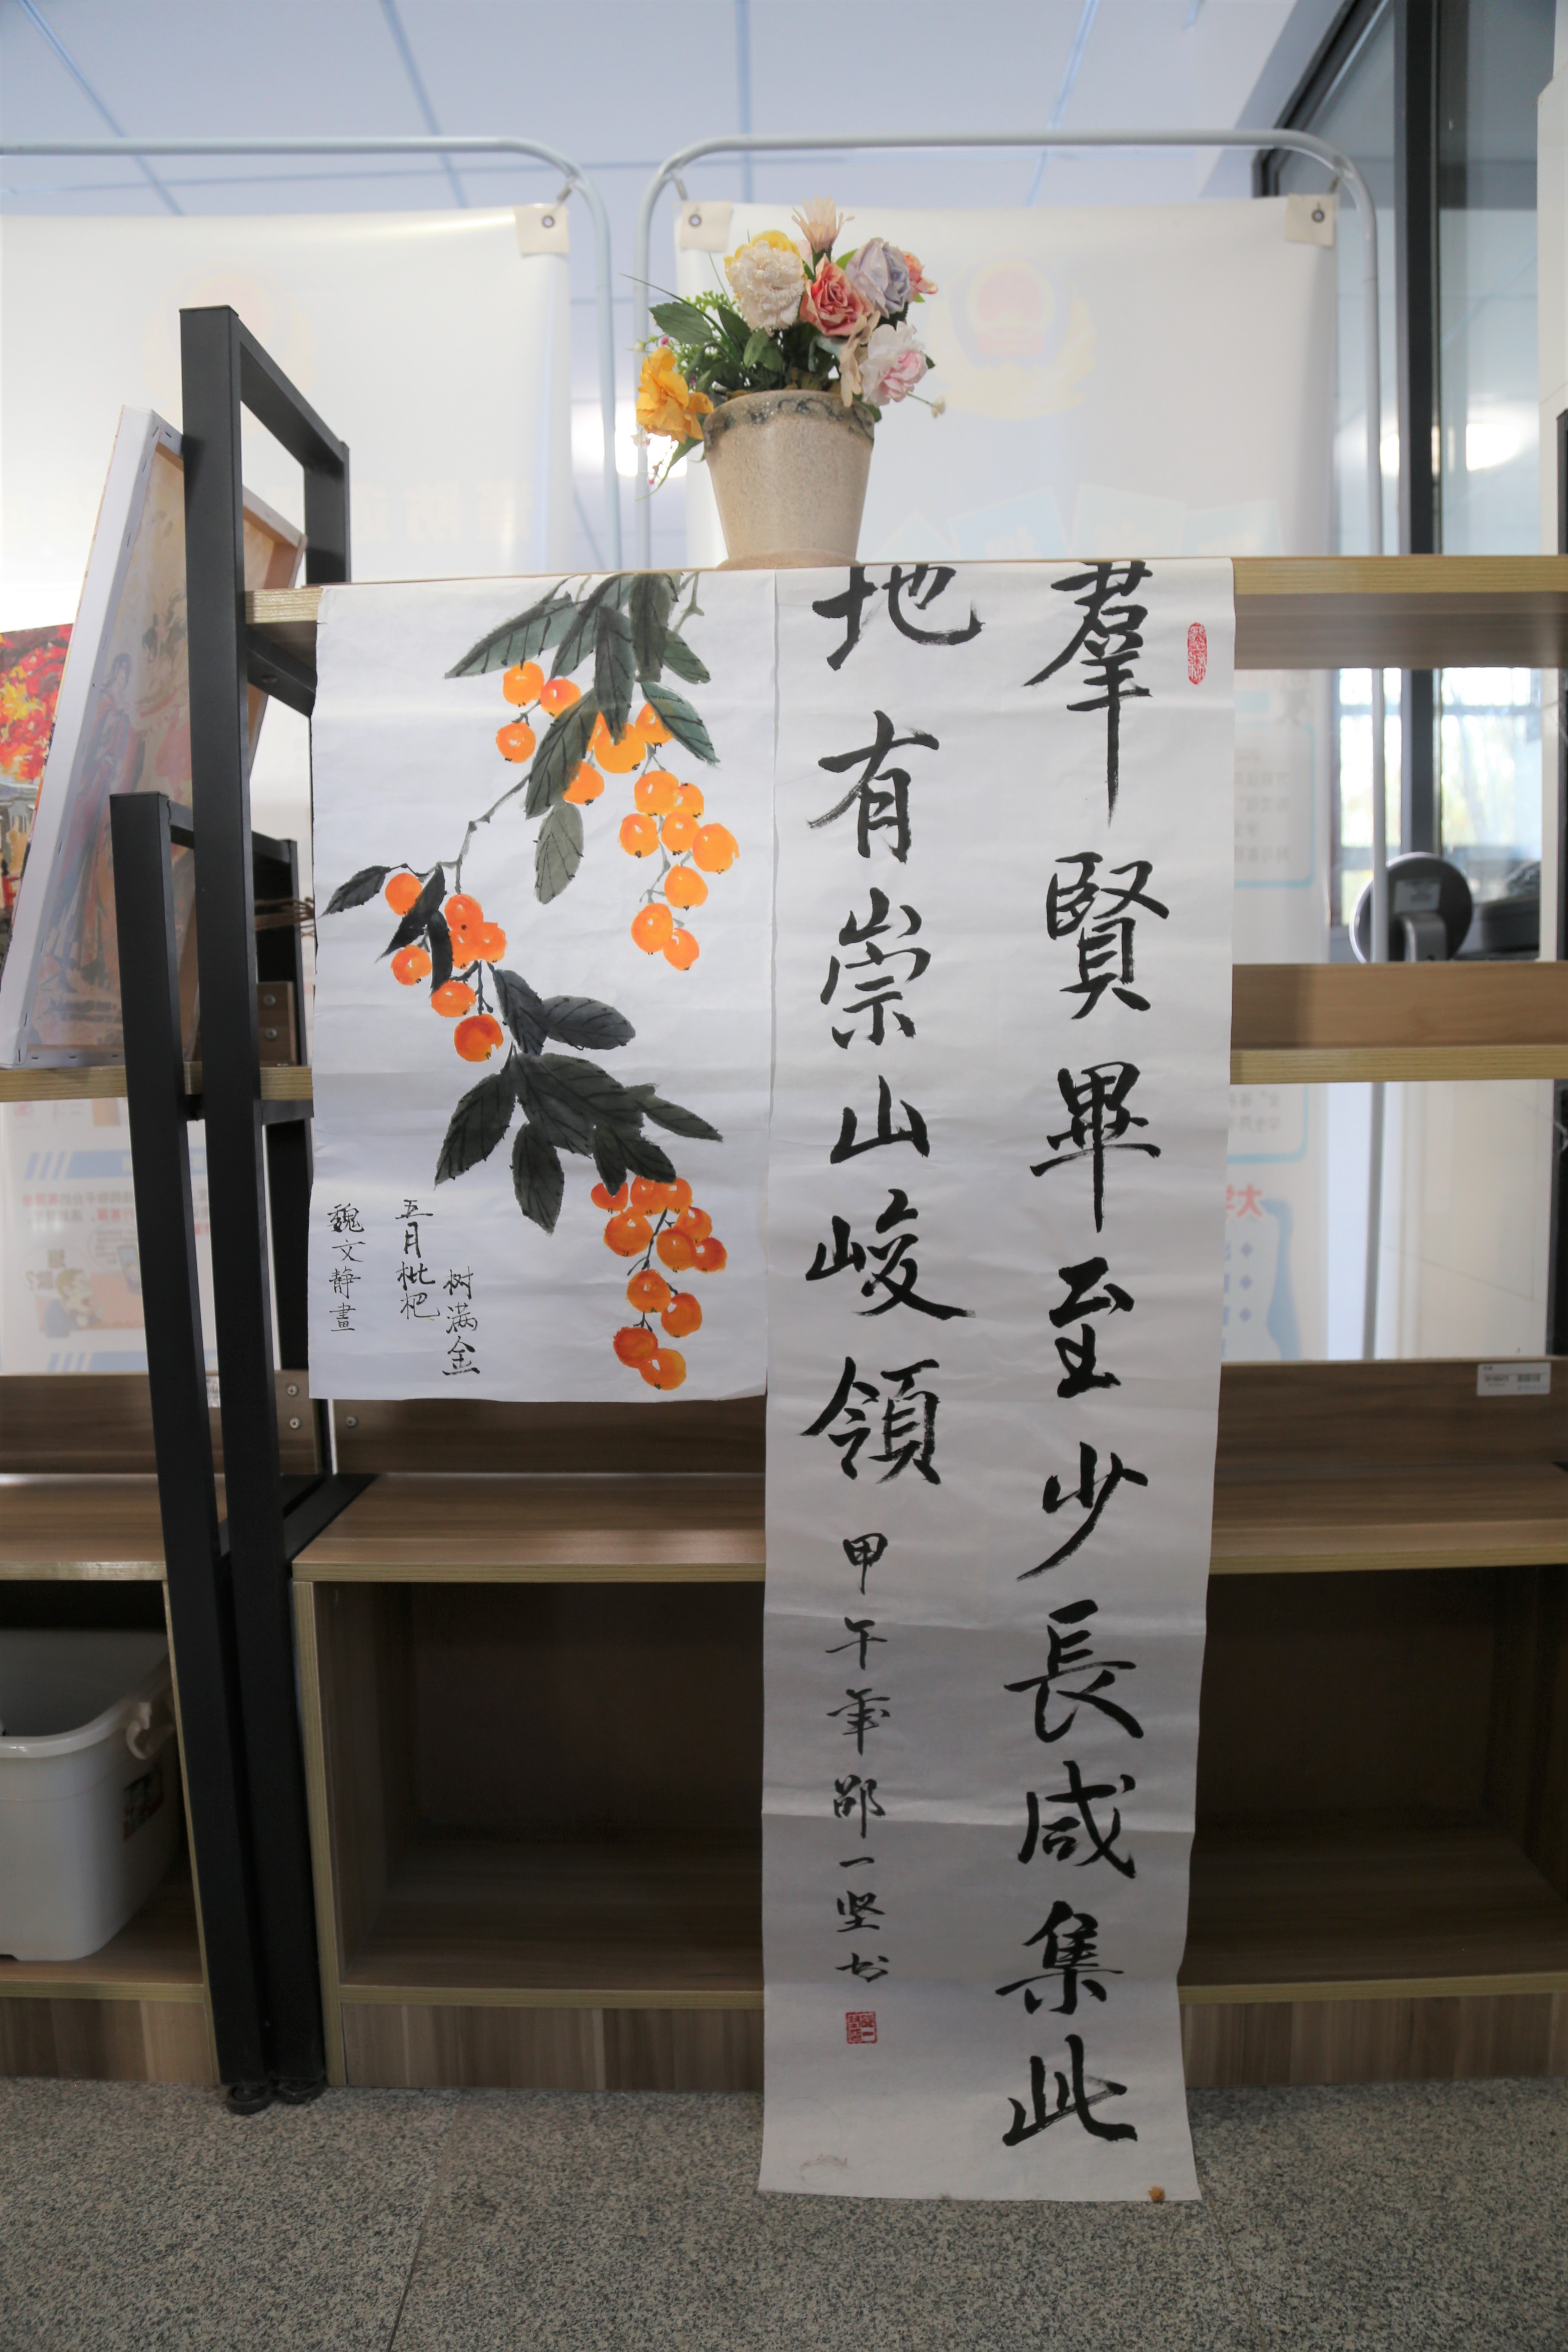 羣賢畢至少長咸集此
地有崇山峻領
甲午年邵一坚书
五月枇杷
树满金
魏文静畫